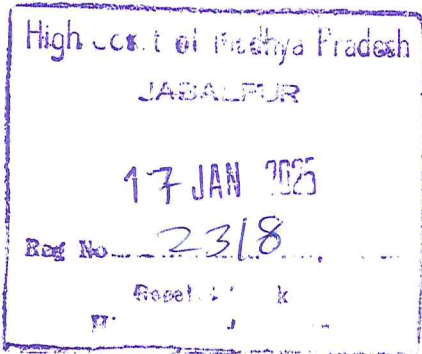 High Court of Madhya Pradesh
JABALPUR
17 JAN 2025
Reg No. 2318